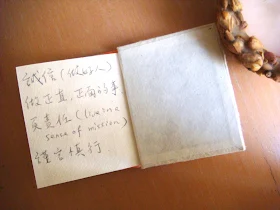 誠信(做好人)
做正直,正面的事
負責任(live one
sense of mission)
謹言慎行